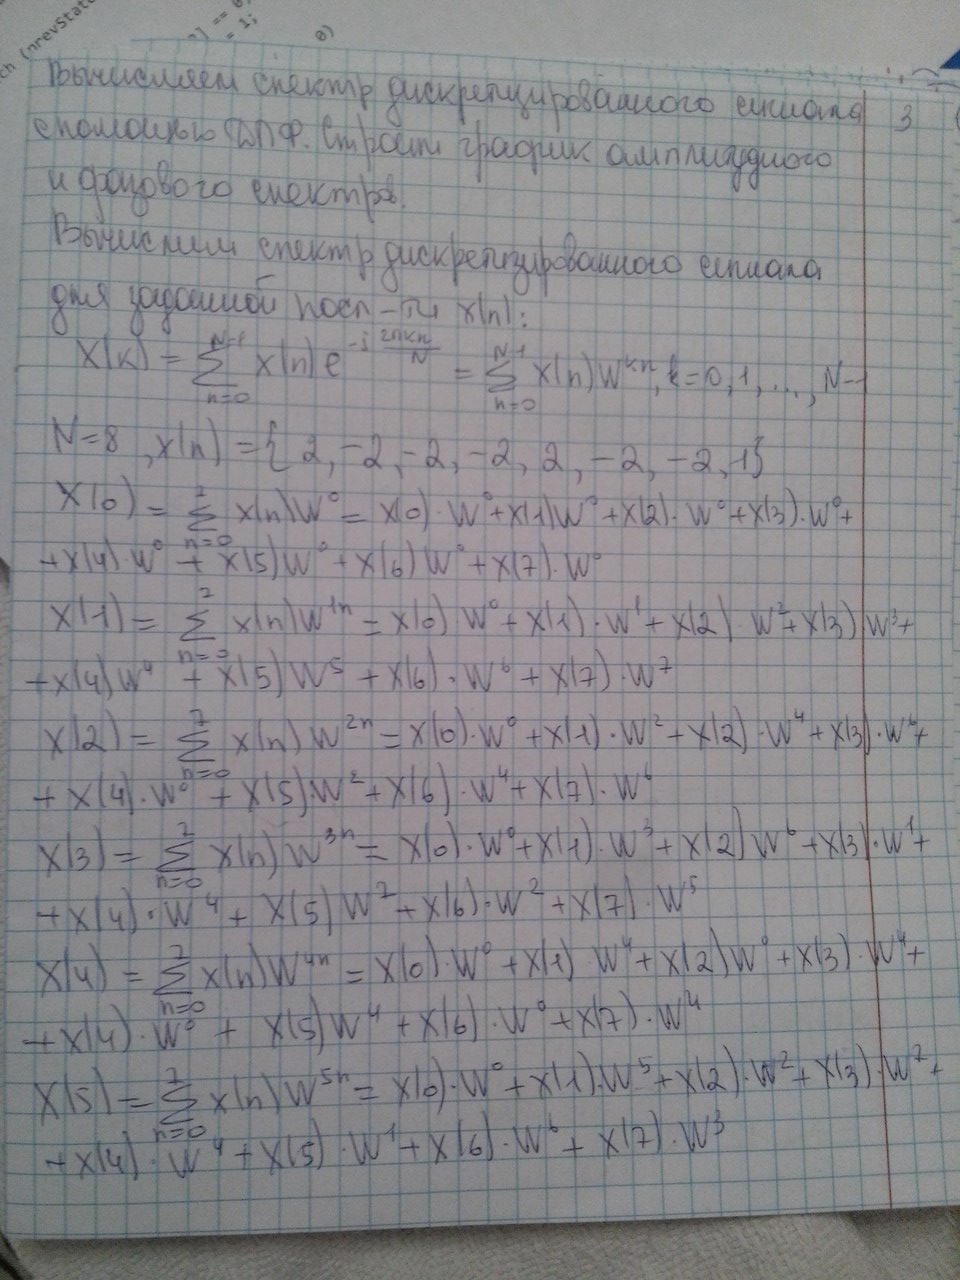 ch (nrevState
] == 0
= 1;
0)
Вычисляем спектр дискретизированного сигнала 3
с помощью ДПФ. Строит график амплитудного
и фазового спектра.
Вычислим спектр дискретизированного сигнала
для заданной посл-ти x(n):
X(k) = Σ_{n=0}^{N-1} x(n) e^{-j 2πkn/N} = Σ_{n=0}^{N-1} x(n)W^{kn}, k=0, 1, ..., N-1
N=8, x(n) = { 2, -2, -2, -2, 2, -2, -2, 1}
X(0) = Σ_{n=0}^{7} x(n)W^0 = x(0)·W^0+x(1)W^0+x(2)·W^0+x(3)·W^0+
+x(4)·W^0 + x(5)W^0+x(6)W^0+x(7)·W^0
X(1) = Σ_{n=0}^{7} x(n)W^{1n} = x(0)·W^0+x(1)·W^1+x(2)·W^2+x(3)W^3+
+x(4)W^4 + x(5)W^5 + x(6)·W^6 + x(7)·W^7
X(2) = Σ_{n=0}^{7} x(n)W^{2n} = x(0)·W^0+x(1)·W^2+x(2)·W^4+x(3)·W^6+
+ x(4)·W^0 + x(5)W^2+x(6)·W^4+x(7)·W^6
X(3) = Σ_{n=0}^{7} x(n)W^{3n} = x(0)·W^0+x(1)·W^3+x(2)W^6+x(3)·W^1+
+x(4)·W^4 + x(5)W^7+x(6)·W^2+x(7)·W^5
X(4) = Σ_{n=0}^{7} x(n)W^{4n} = x(0)·W^0+x(1)·W^4+x(2)W^0+x(3)·W^4+
+x(4)·W^0 + x(5)W^4 + x(6)·W^0+x(7)·W^4
X(5) = Σ_{n=0}^{7} x(n)W^{5n} = x(0)·W^0+x(1)·W^5+x(2)·W^2+x(3)·W^7+
+x(4)·W^4+x(5)·W^1+x(6)·W^6+ x(7)·W^3